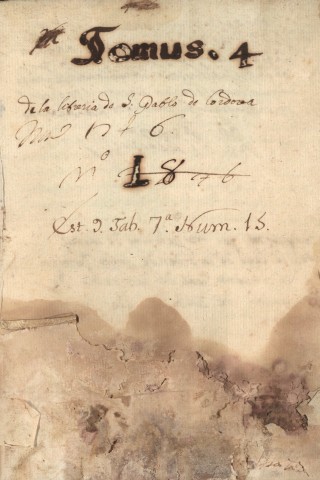 Tomus. 4
de la libreria de S. Pablo de Cordova
n 4 6.
Nº 18
Est. 9. Tab. 7ª. Num. 15.